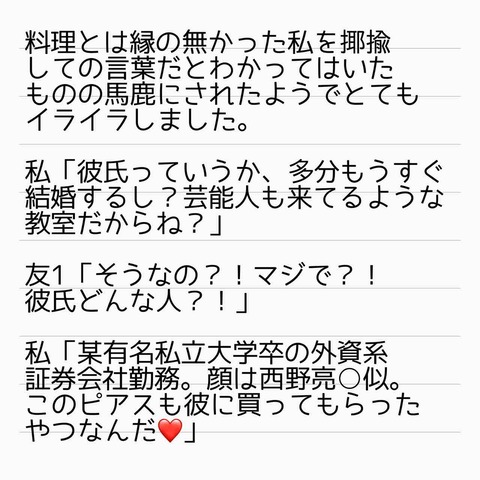 料理とは縁の無かった私を揶揄
しての言葉だとわかってはいた
ものの馬鹿にされたようでとても
イライラしました。
私「彼氏っていうか、多分もうすぐ
結婚するし？芸能人も来てるような
教室だからね？」
友1「そうなの？！マジで？！
彼氏どんな人？！」
私「某有名私立大学卒の外資系
証券会社勤務。顔は西野亮○似。
このピアスも彼に買ってもらった
やつなんだ❤️」